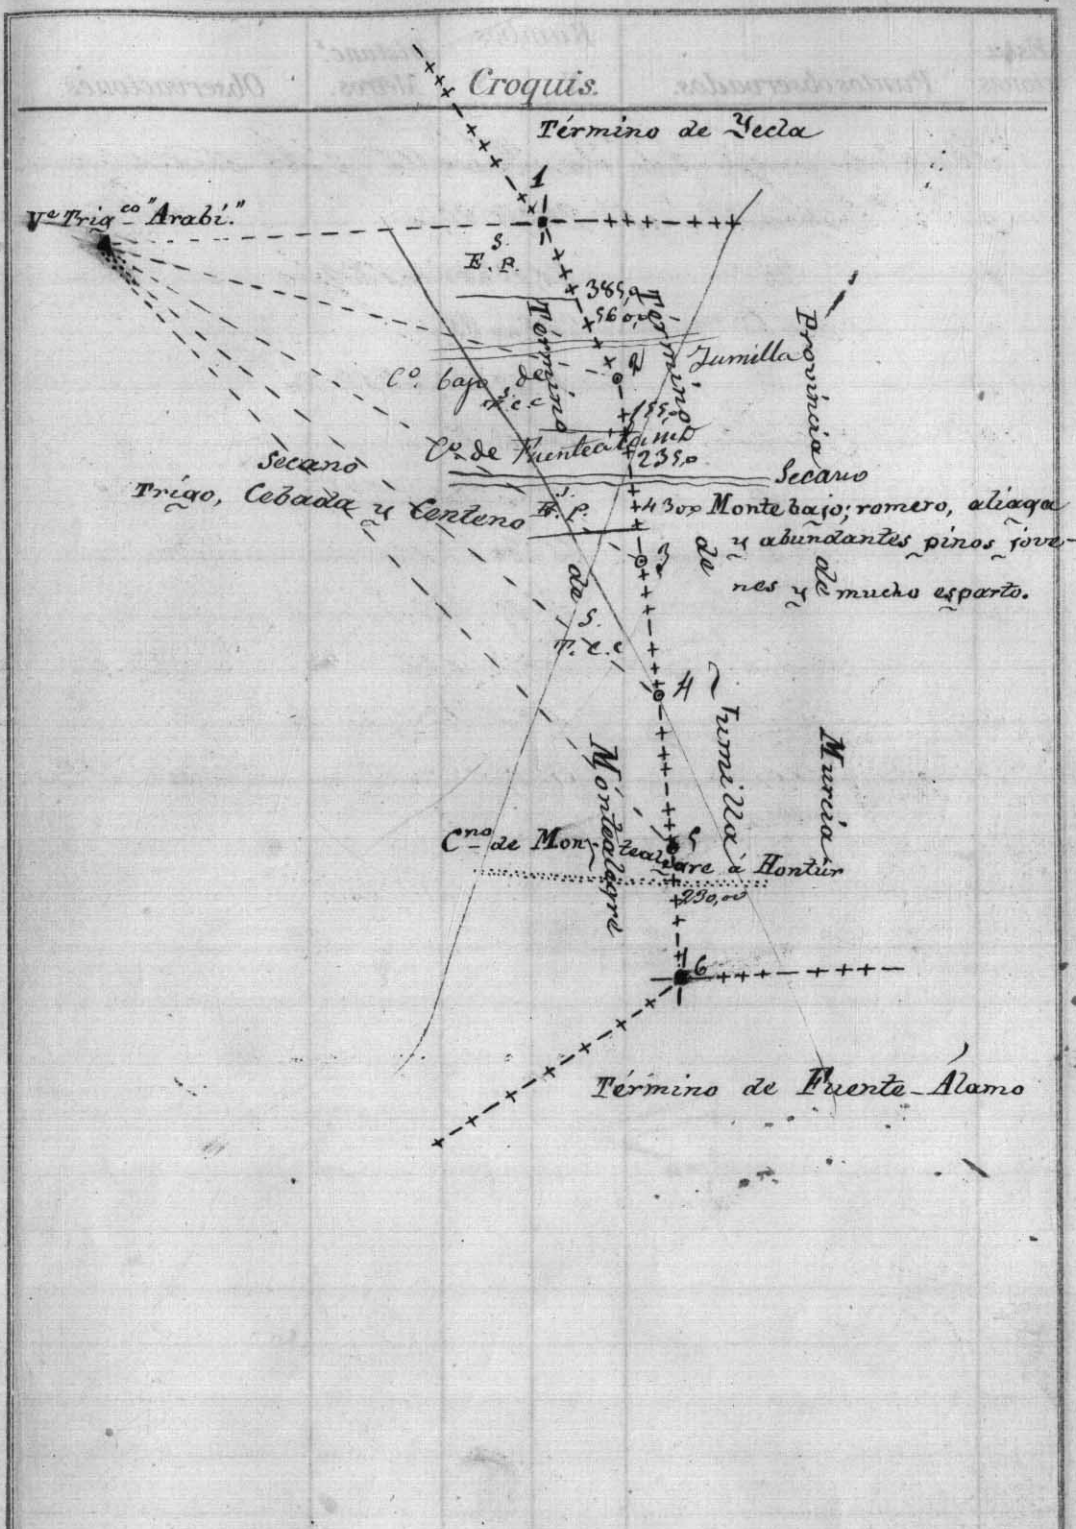 Croquis.
Término de Yecla
1
Vᵉ Trigᶜᵒ "Arabí."
S.
E. P.
385,0
560,0
Término
Término
Provincia
2
Jumilla
Cº. bajo de
155,0
Cº. de Fuenteálamo
235,0
Secano
Secano
Trigo, Cebada y Centeno
S.
E. P.
430,0
Monte bajo; romero, aliaga
y abundantes pinos jove-
nes y mucho esparto.
3
de
de
de
S.
T. C. C
4
Jumilla
Murcia
Montealegre
5
Cⁿᵒ de Montealegre á Hontúr
230,00
6
Término de Fuente-Álamo